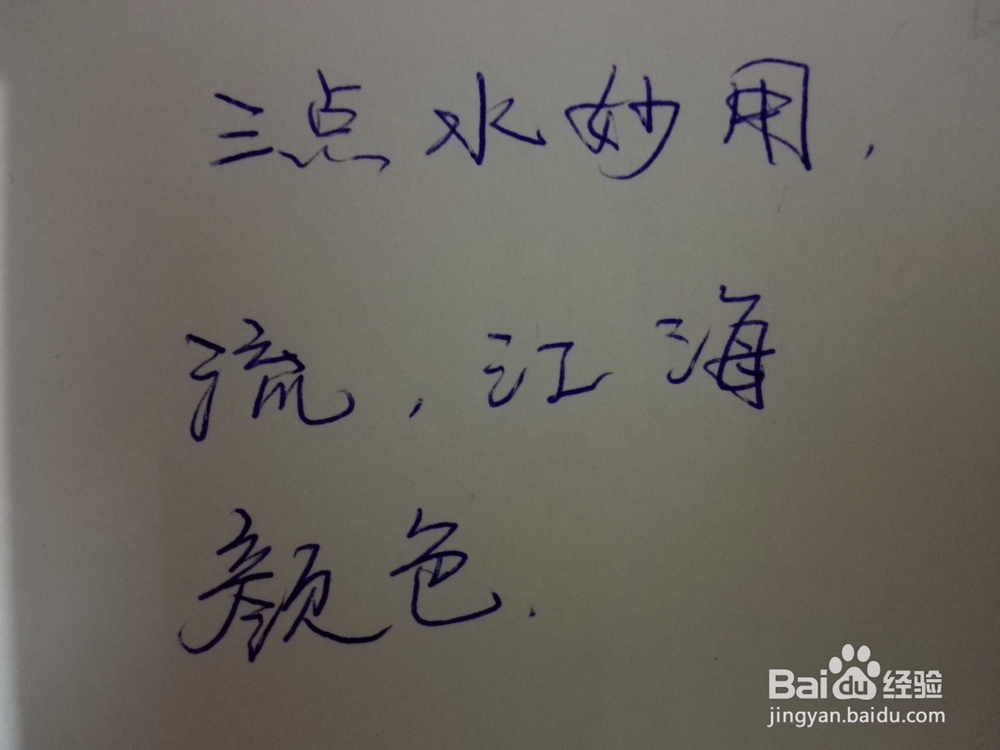 三点水妙用,
流,江海
颜色.
Baidu经验
jingyan.baidu.com